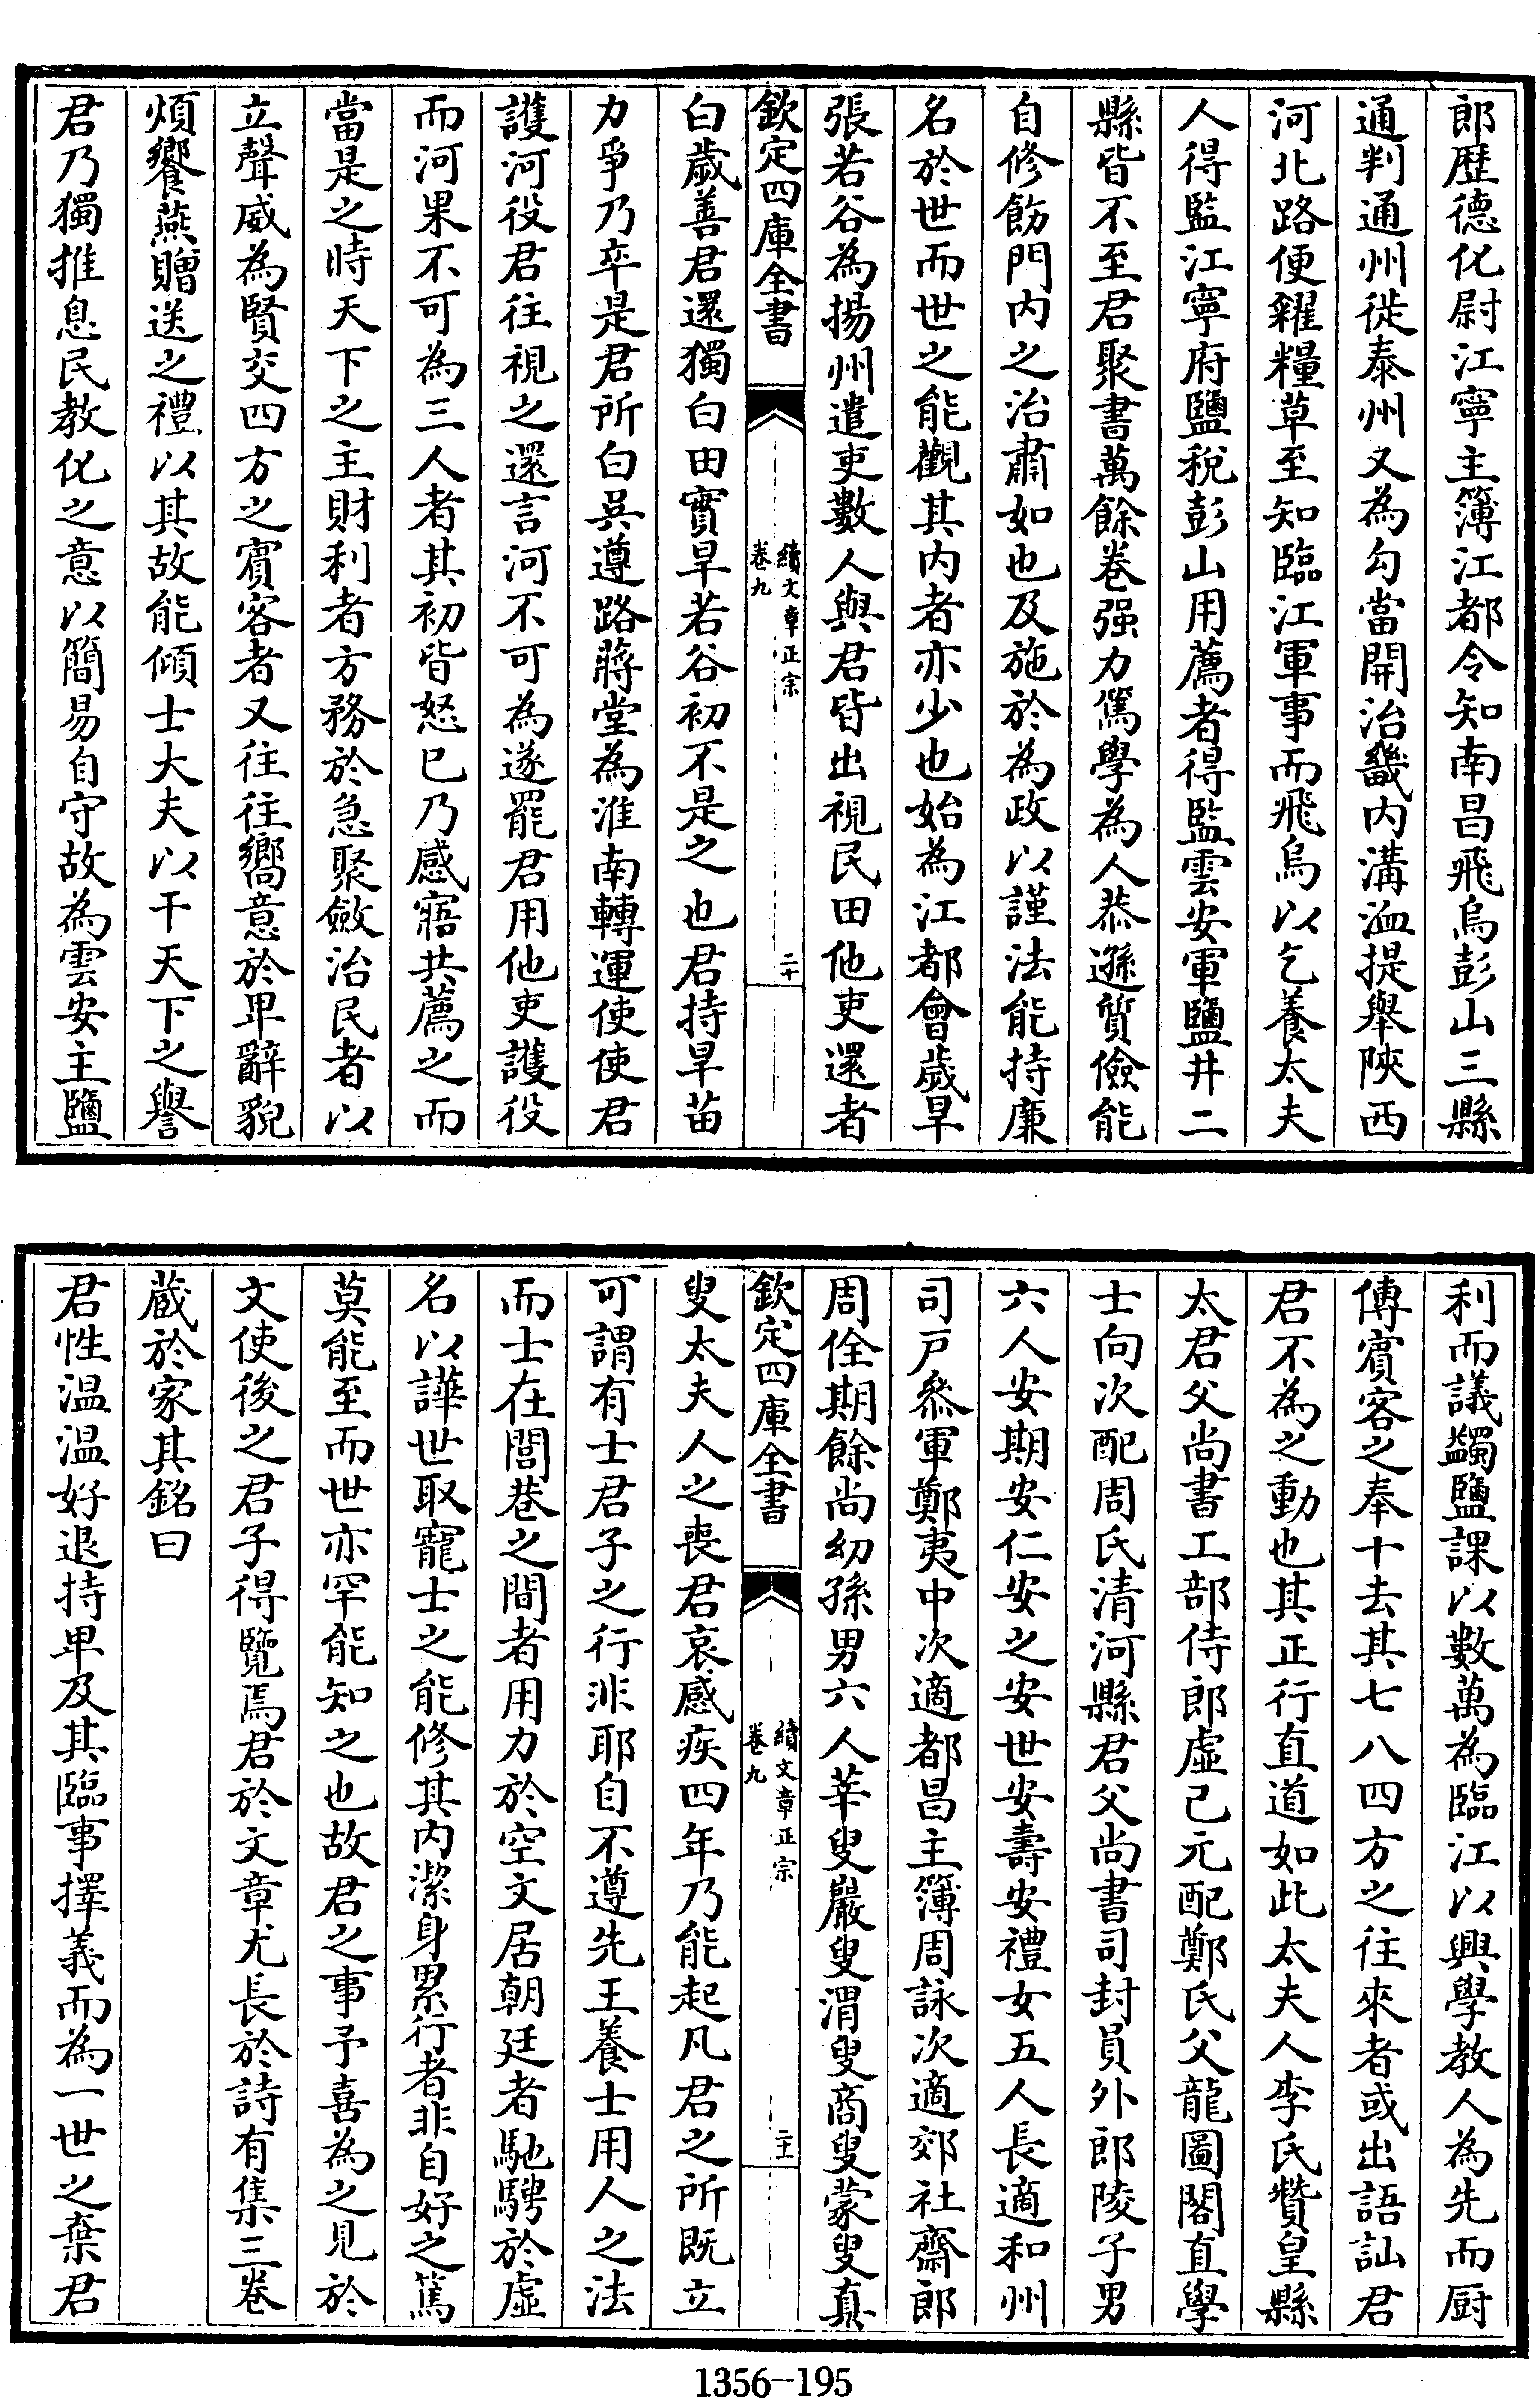 郎歴德化尉江寧主簿江都令知南昌飛烏彭山三縣
通判通州徙泰州又為勾當開治畿内溝洫提舉陜西
河北路便糴糧草至知臨江軍事而飛烏以乞養太夫
人得監江寧府鹽稅彭山用薦者得監雲安軍鹽井二
縣皆不至君聚書萬餘卷强力篤學為人恭遜質儉能
自修飭門内之治肅如也及施於為政以謹法能持廉
名於世而世之能觀其内者亦少也始為江都會歲旱
張若谷為揚州遣吏數人與君皆出視民田他吏還者
欽定四庫全書
續文章正宗
卷九
二十
白歲善君還獨白田實旱若谷初不是之也君持旱苗
力爭乃卒是君所白吳遵路蔣堂為淮南轉運使使君
護河役君往視之還言河不可為遂罷君用他吏護役
而河果不可為三人者其初皆怒已乃感寤共薦之而
當是之時天下之主財利者方務於急聚斂治民者以
立聲威為賢交四方之賓客者又往往嚮意於卑辭貌
煩饗燕贈送之禮以其故能傾士大夫以干天下之譽
君乃獨推息民教化之意以簡易自守故為雲安主鹽
利而議蠲鹽課以數萬為臨江以興學教人為先而厨
傳賓客之奉十去其七八四方之往來者或出語訕君
君不為之動也其正行直道如此太夫人李氏贊皇縣
太君父尚書工部侍郎虛己元配鄭氏父龍圖閣直學
士向次配周氏清河縣君父尚書司封員外郎陵子男
六人安期安仁安之安世安壽安禮女五人長適和州
司戸叅軍鄭夷中次適都昌主簿周詠次適郊社齋郎
周佺期餘尚幼孫男六人莘叟巖叟渭叟商叟蒙叟真
欽定四庫全書
續文章正宗
卷九
二十一
叟太夫人之喪君哀感疾四年乃能起凡君之所既立
可謂有士君子之行非耶自不遵先王養士用人之法
而士在閭巷之間者用力於空文居朝廷者馳騁於虛
名以譁世取寵士之能修其内潔身累行者非自好之篤
莫能至而世亦罕能知之也故君之事予喜為之見於
文使後之君子得覽焉君於文章尤長於詩有集三卷
蔵於家其銘曰
君性温温好退持卑及其臨事擇義而為一世之棄君
1356-195